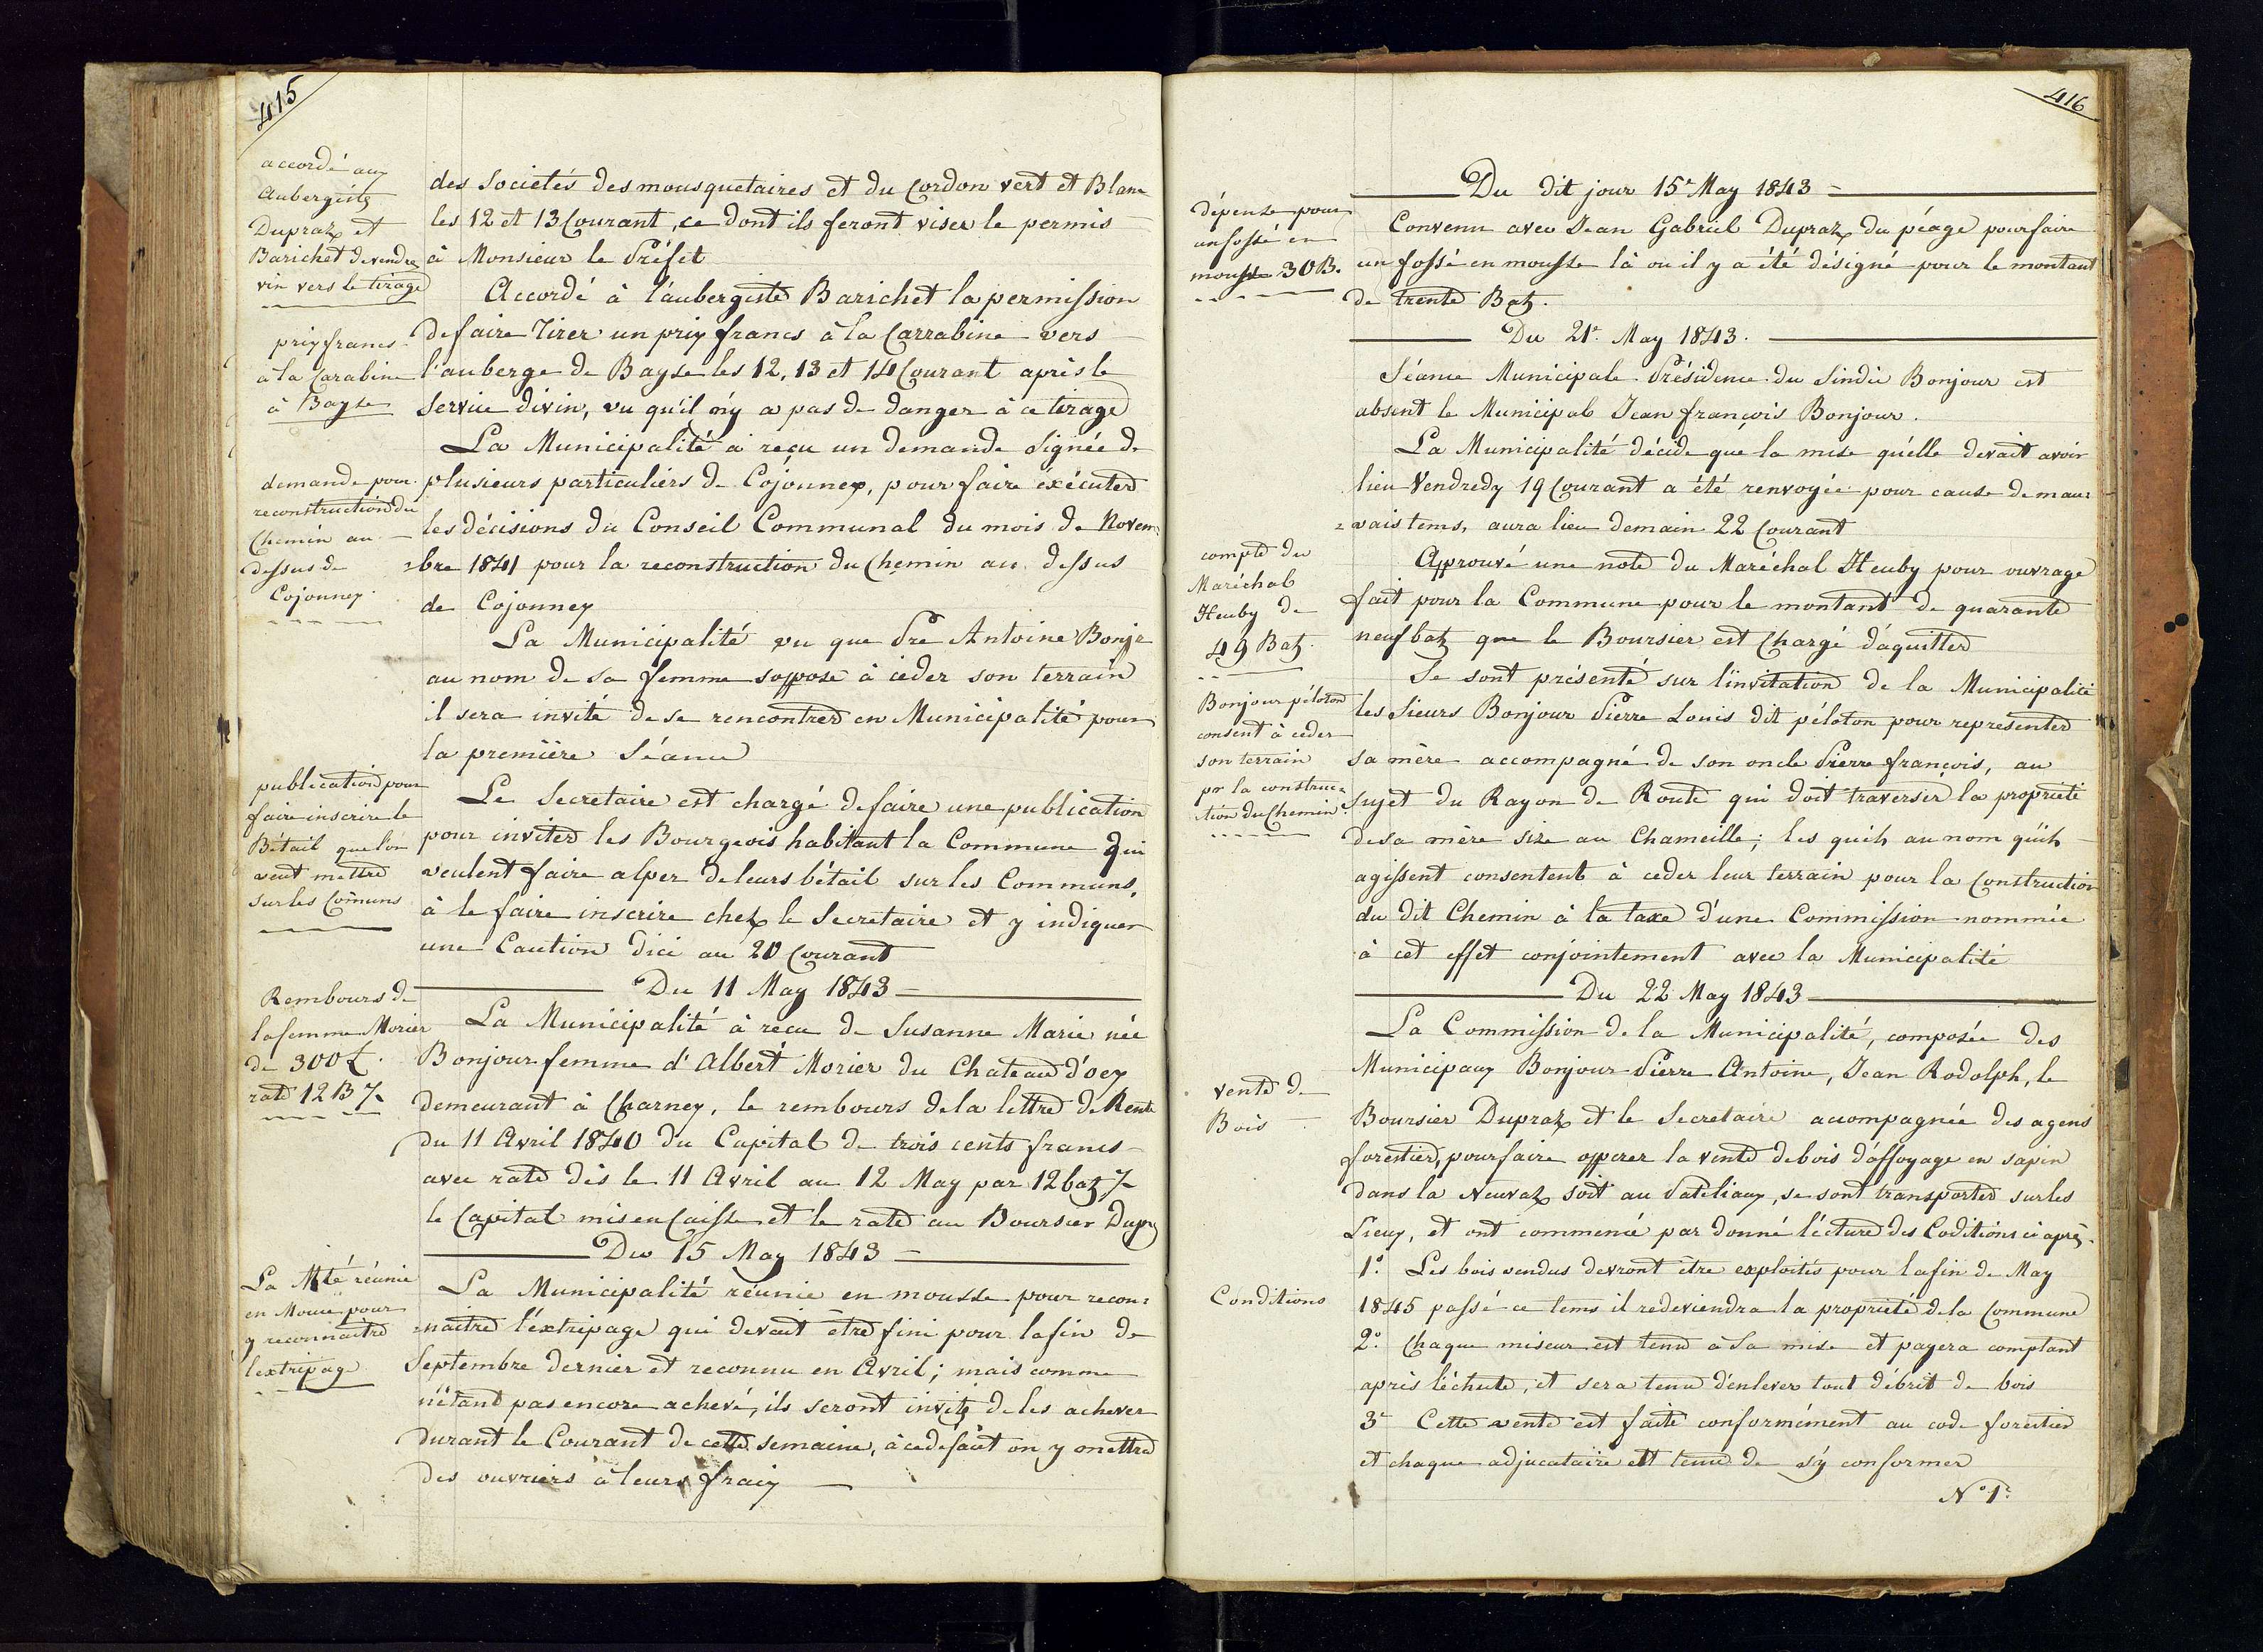 415
accordé aux
Aubergistes
Dupraz et
Barichet de vendre
vin vers le tirage
des Sociétés des mousquetaires et du Cordon vert et Blanc
les 12 et 13 Courant, ce dont ils feront viser le permis
à Monsieur le Préfet
prix francs
à la Carabine
à Bayse
Accordé à l'aubergiste Barichet la permission
de faire Tirer un prix francs à la Carrabine vers
l'auberge de Bayse les 12, 13 et 14 Courant après le
Service divin, vu qu'il n'y a pas de danger à ce tirage
demande pour
reconstruction du
Chemin au
dessus de
Cojonnex
La Municipalité a reçu un demande Signée de
plusieurs particuliers de Cojonnex, pour faire éxécuter
les décisions du Conseil Communal du mois de Novem
=bre 1841 pour la reconstruction du Chemin au dessus
de Cojonnex
La Municipalité vu que Pre Antoine Bonjr
au nom de sa femme soppose à céder son terrain
il sera invité de se rencontrer en Municipalité pour
la première Séance
publication pour
faire inscrire le
Bétail que l'on
veut mettre
sur les Comuns
Le Secretaire est chargé de faire une publication
pour inviter les Bourgeois habitant la Commune qui
veulent faire alper de leurs bétail sur les Communs,
à le faire inscrire chez le Secretaire et y indiquer
une Caution dici au 20 Courant
Du 11 May 1843
Rembours de
la femme Morier
de 300 £.
rate 12 B 7
La Municipalité à reçu de Susanne Marie née
Bonjour femme d'Albert Morier du Chateau d'oex
demeurant à Charnex, le rembours de la lettre de Rente
du 11 Avril 1840 du Capital de trois cents francs
avec rate dès le 11 Avril au 12 May par 12 batz 7
le Capital mis en Caisse et le rate au Boursier Dupz
Du 15 May 1843
La Mté réunie
en Mousse pour
y reconnaitre
lextripage
La Municipalité réunie en mousse pour recon=
=naitre l'éxtripage qui devait être fini pour la fin de
Septembre dernier et reconnu en Avril; mais comme
n'étant pas encore achevé, ils seront invités de les achever
durant le Courant de cette semaine, à ce défaut on y mettra
des ouvriers à leurs fraix
416
Du dit jour 15e May 1843
dépense pour
un fossé en
mousse 30 B.
Convenu avec Jean Gabriel Dupraz du péage pour faire
un fossé en mousse là ou il y a été désigné pour le montant
de trente Batz.
Du 21e May 1843.
Séance Municipale Présidence du Sindic Bonjour est
absent le Municipal Jean françois Bonjour.
La Municipalité décide que la mise qu'elle devait avoir
lieu Vendredy 19 Courant a été renvoyée pour cause de mau=
=vais tems, aura lieu demain 22 Courant
compte du
Maréchal
Heuby de
49 Batz.
Approuvé une note du Maréchal Heuby pour ouvrage
fait pour la Commune pour le montant de quarante
neuf batz que le Boursier est Chargé d'aquitter
Bonjour péloton
consent à ceder
son terrain
pr la construc=
=tion du Chemin.
Se sont présenté sur l'invitation de la Municipalité
les Sieurs Bonjour Pierre Louis dit péloton pour representer
sa mère accompagné de son oncle Pierre françois, au
Sujet du Rayon de Route qui doit traverser la propriété
de sa mère size au Chameille; les quels au nom qu'ils
agissent consentent à ceder leur terrain pour la Construction
du dit Chemin à la taxe d'une Commission nommée
à cet effet conjointement avec la Municipalité
Du 22 May 1843
vente de
Bois
La Commission de la Municipalité, composée des
Municipaux Bonjour Pierre Antoine, Jean Rodolph, le
Boursier Dupraz et le Secretaire accompagnée des agens
forestier, pour faire opperer la vente de bois d'affoyage en sapin
dans la Neuvaz soit au Pateliaux, se sont transporter sur les
Lieux, et ont commencé par donné lécture des Coditions ci après.
Conditions
1° Les bois vendus devront être exploités pour la fin de May
1845 passé ce tems il redeviendra la propriété de la Commune
2° Chaque miseur est tenu à Sa mise et payera comptant
après l'échute, et sera tenu d'enlever tout débrit de bois
3e Cette vente est faite conformément au code forestier
et chaque adjucataire est tenu de s'y conformer
N° 1er